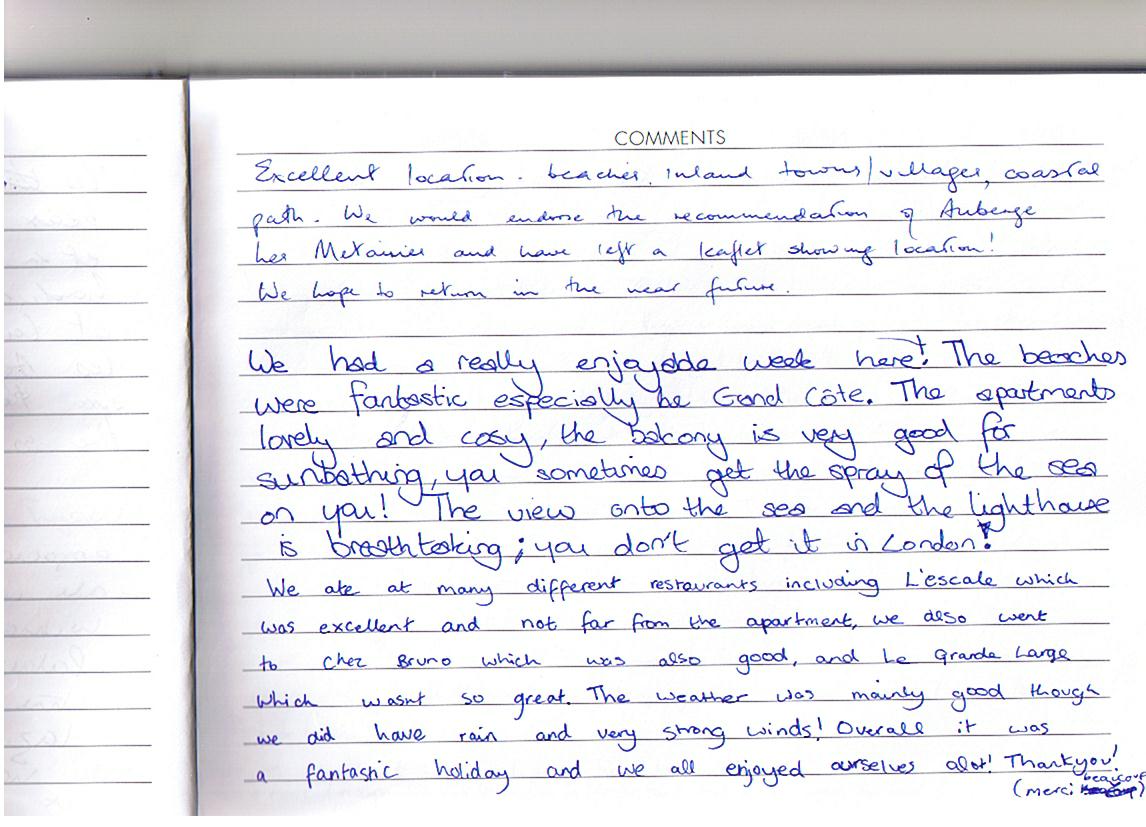 COMMENTS
Excellent location - beaches, inland towns/villages, coastal
path. We would endorse the recommendation of Auberge
Les Metairies and have left a leaflet showing location!
We hope to return in the near future.
We had a really enjoyable week here! The beaches
were fantastic especially he Grand Côte. The apartments
lovely and cosy, the balcony is very good for
sunbathing, you sometimes get the spray of the sea
on you! The view onto the sea and the lighthouse
is breathtaking; you don't get it in London!
We ate at many different restaurants including L'escale which
was excellent and not far from the apartment, we also went
to Chez Bruno which was also good, and Le Grande Large
which wasnt so great. The weather was mainly good though
we did have rain and very strong winds! Overall it was
a fantastic holiday and we all enjoyed ourselves alot! Thankyou!
(merci beaucoup)